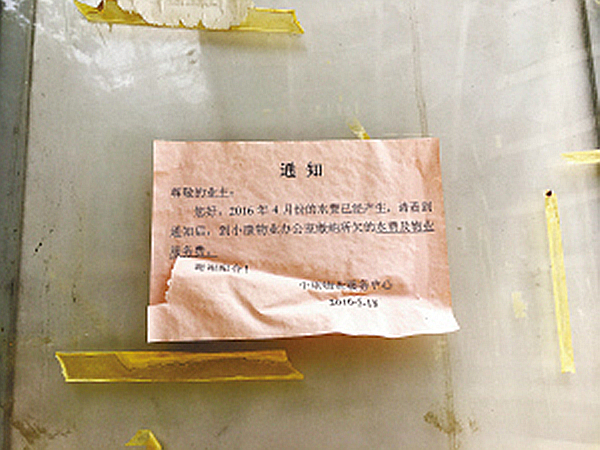 通知
尊敬的业主：
您好，2016年4月份的水费已经产生，请看到
通知后，到小康物业办公室缴纳所欠的水费及物业
服务费。
谢谢配合！
小康物业服务中心
2016-5-18